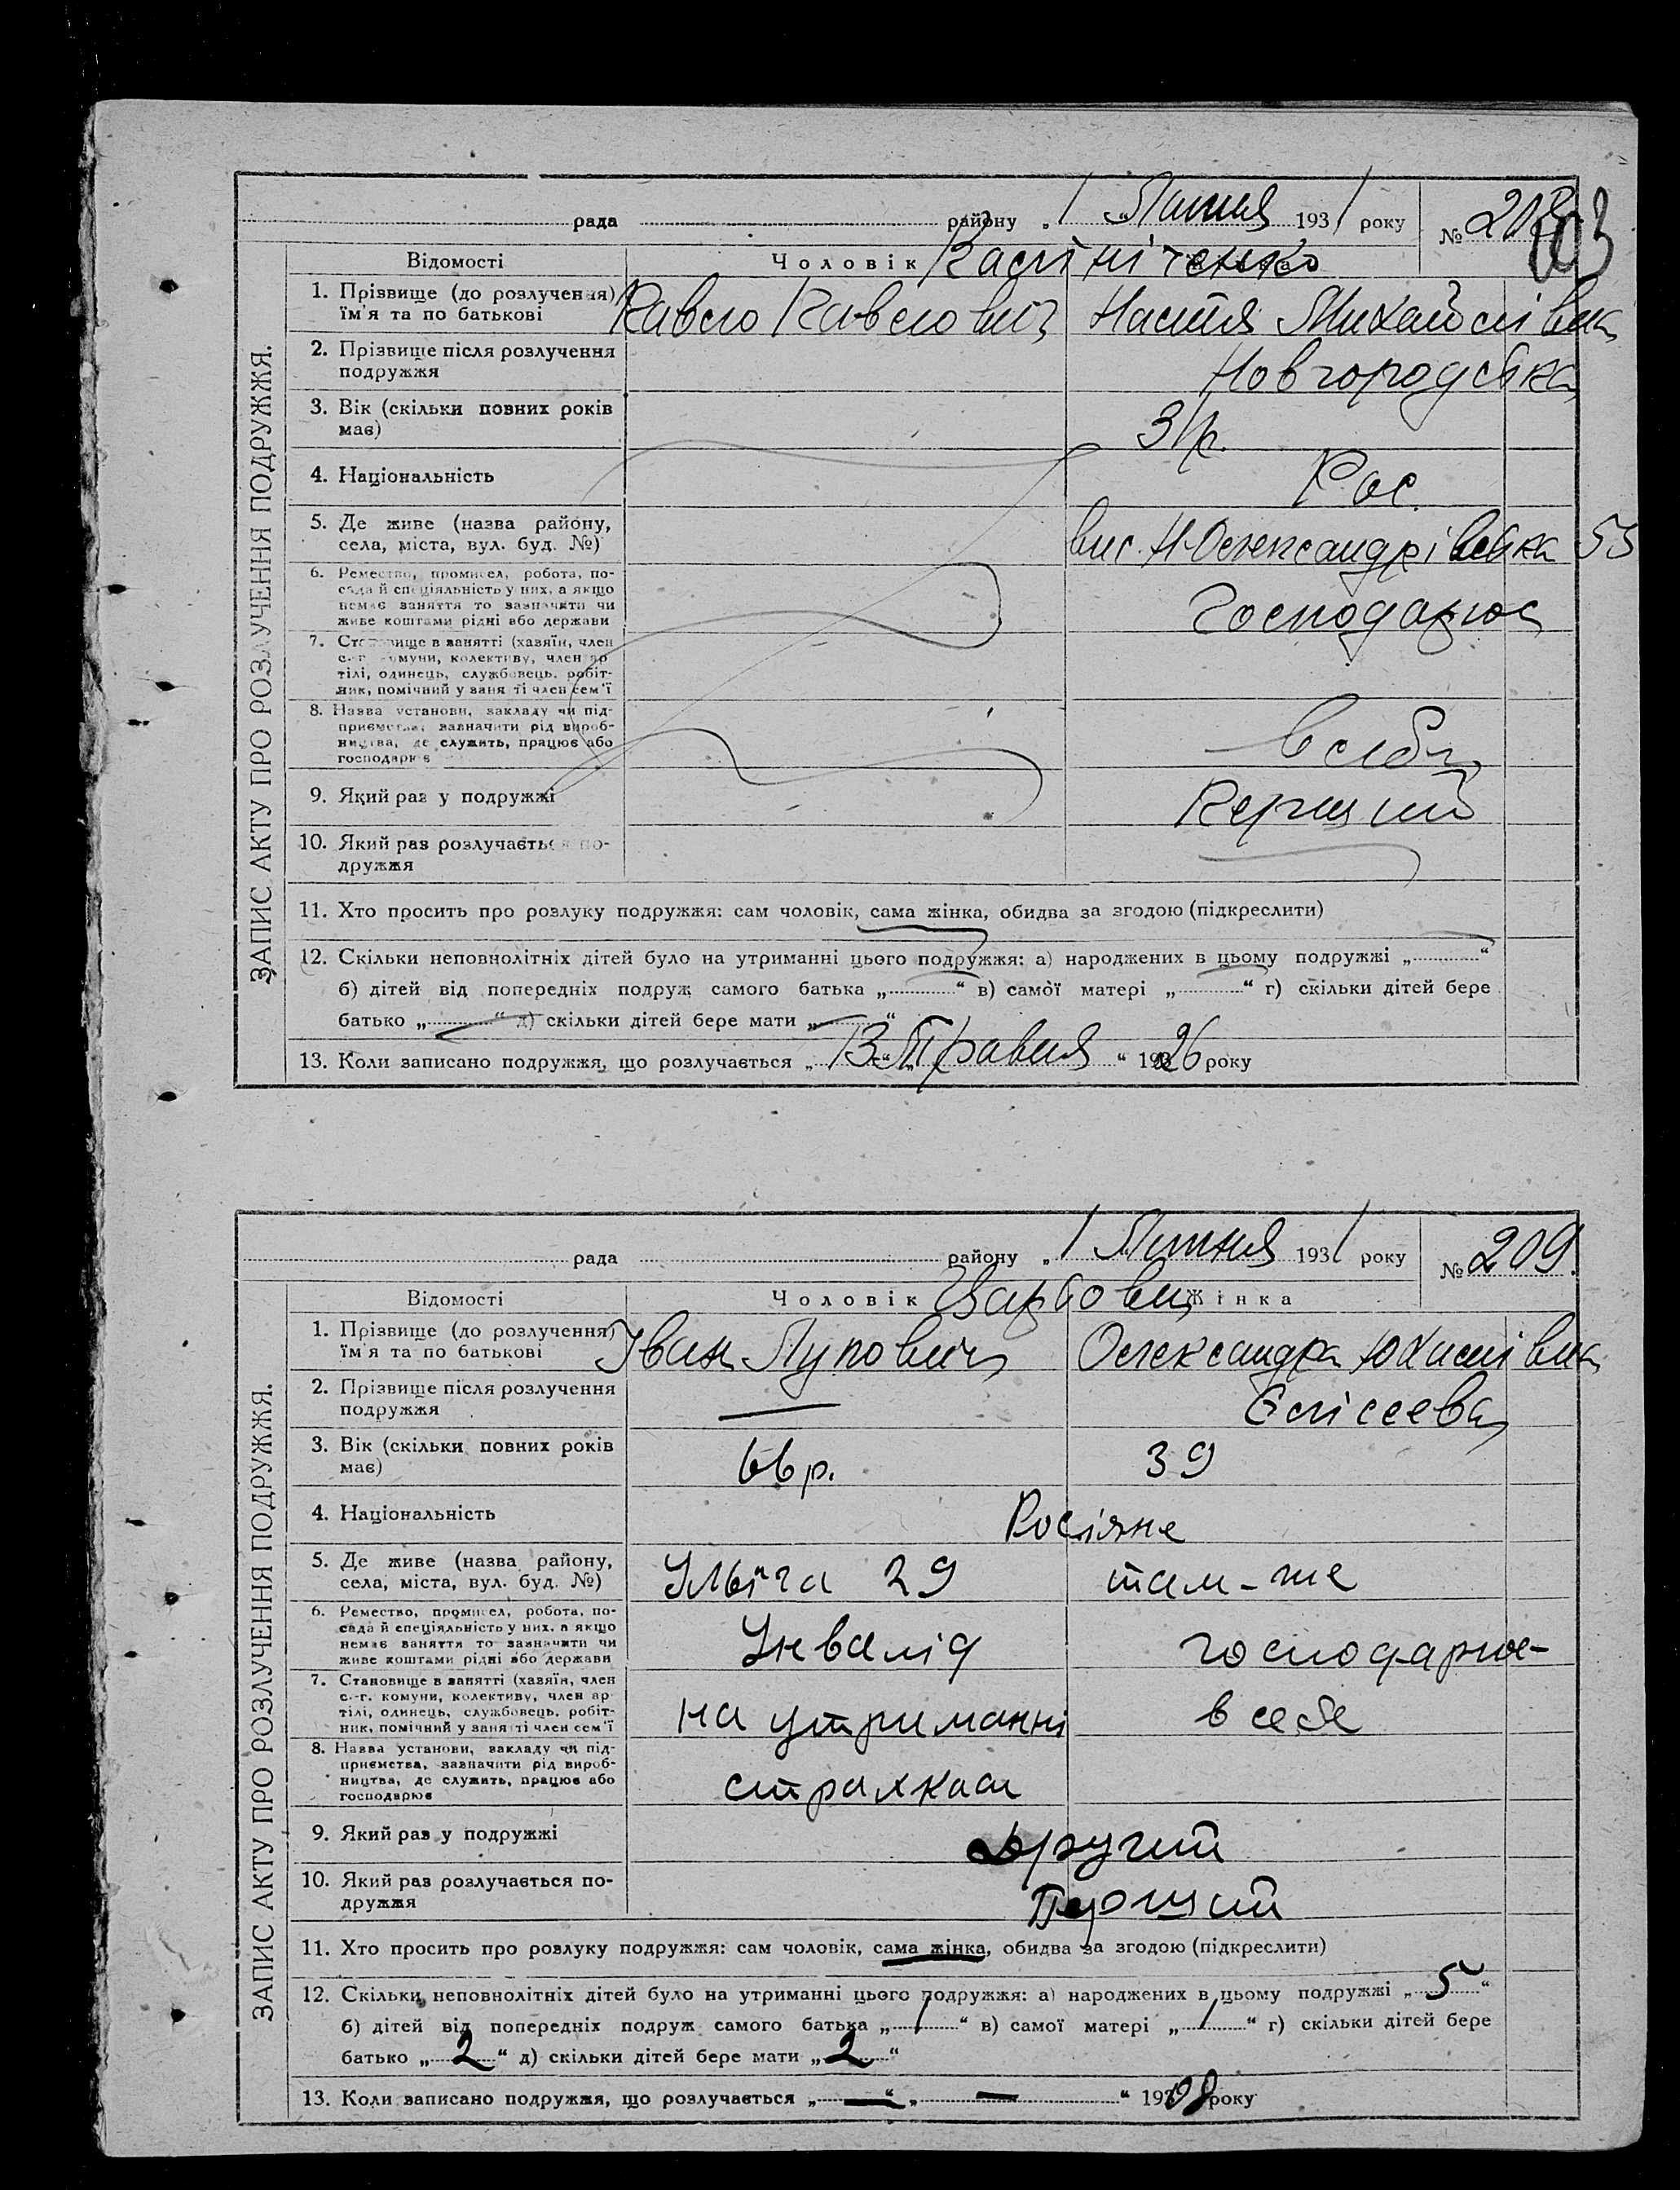 ЗАПИС АКТУ ПРО РОЗЛУЧЕННЯ ПОДРУЖЖЯ.
рада района „1 Липня 1931 року № 208
103
Відомості Чоловік
1. Прізвище (до розлучення) Павло Павлович Настя Михайлівна
ім'я та по батькові
2. Прізвище після розлучення Новгородська
подружжя
3. Вік (скільки повних років 31 р.
має)
4. Національність Рос.
5. Де живе (назва району, вис. Н-Олександрівська 53
села, міста, вул. буд. №)
6. Ремество, промисел, робота, по-
сада й спеціяльність у них, а якщо
немає заняття то зазначити чи Господарює
живе коштами рідні або держави
7. Становище в занятті (хазяїн, член
с.-г. комуни, колективу, член ар
тілі, одинець, службовець, робіт-
ник, помічний у занятті член сем'ї
8. Назва установи, закладу чи під-
приємства, зазначити рід вироб-
ництва, де служить, працює або
господарює
9. Який раз у подружжі Перший
10. Який раз розлучається по-
дружжя
11. Хто просить про розлуку подружжя: сам чоловік, сама жінка, обидва за згодою (підкреслити)
12. Скільки неповнолітніх дітей було на утриманні цього подружжя: а) народжених в цьому подружжі „ “
б) дітей від попередніх подруж самого батька „ “ в) самої матері „ “ г) скільки дітей бере
батько „ “ д) скільки дітей бере мати „ “
13. Коли записано подружжя, що розлучається „13“ „Травня“ 1926 року
ЗАПИС АКТУ ПРО РОЗЛУЧЕННЯ ПОДРУЖЖЯ.
рада району „1 Липня 1931 року № 209.
Відомості Чоловік Жінка
1. Прізвище (до розлучення) Іван Лупович Олександра Юхимівна
ім'я та по батькові
2. Прізвище після розлучення — Єлісеева
подружжя
3. Вік (скільки повних років 66 р. 39
має)
4. Національність Росіяне
5. Де живе (назва району, Ільіча 29 там-же
села, міста, вул. буд. №)
6. Ремество, промисел, робота, по-
сада й спеціяльність у них, а якщо Інвалід господарює
немає заняття то зазначити чи
живе коштами рідні або держави
7. Становище в занятті (хазяїн, член
с.-г. комуни, колективу, член ар на утриманні в себе
тілі, одинець, службовець, робіт-
ник, помічний у занятті член сем'ї
8. Назва установи, закладу чи під-
приємства, зазначити рід вироб- страхкаси
ництва, де служить, працює або
господарює
9. Який раз у подружжі Другий
10. Який раз розлучається по- Перший
дружжя
11. Хто просить про розлуку подружжя: сам чоловік, сама жінка, обидва за згодою (підкреслити)
12. Скільки неповнолітніх дітей було на утриманні цього подружжя: а) народжених в цьому подружжі „5“
б) дітей від попередніх подруж самого батька „/“ в) самої матері „/“ г) скільки дітей бере
батько „2“ д) скільки дітей бере мати „2“
13. Коли записано подружжя, що розлучається „—“ „—“ 1908 року